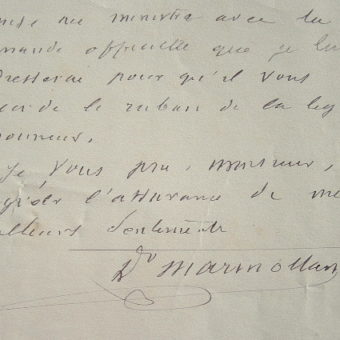 au ministre avec la
mande officielle que je lui
dresserai pour qu'il vous
de le ruban de la leg
onneur.
Je vous prie, monsieur,
l'assurance de me
illeurs sentiments
Dr Marmottan